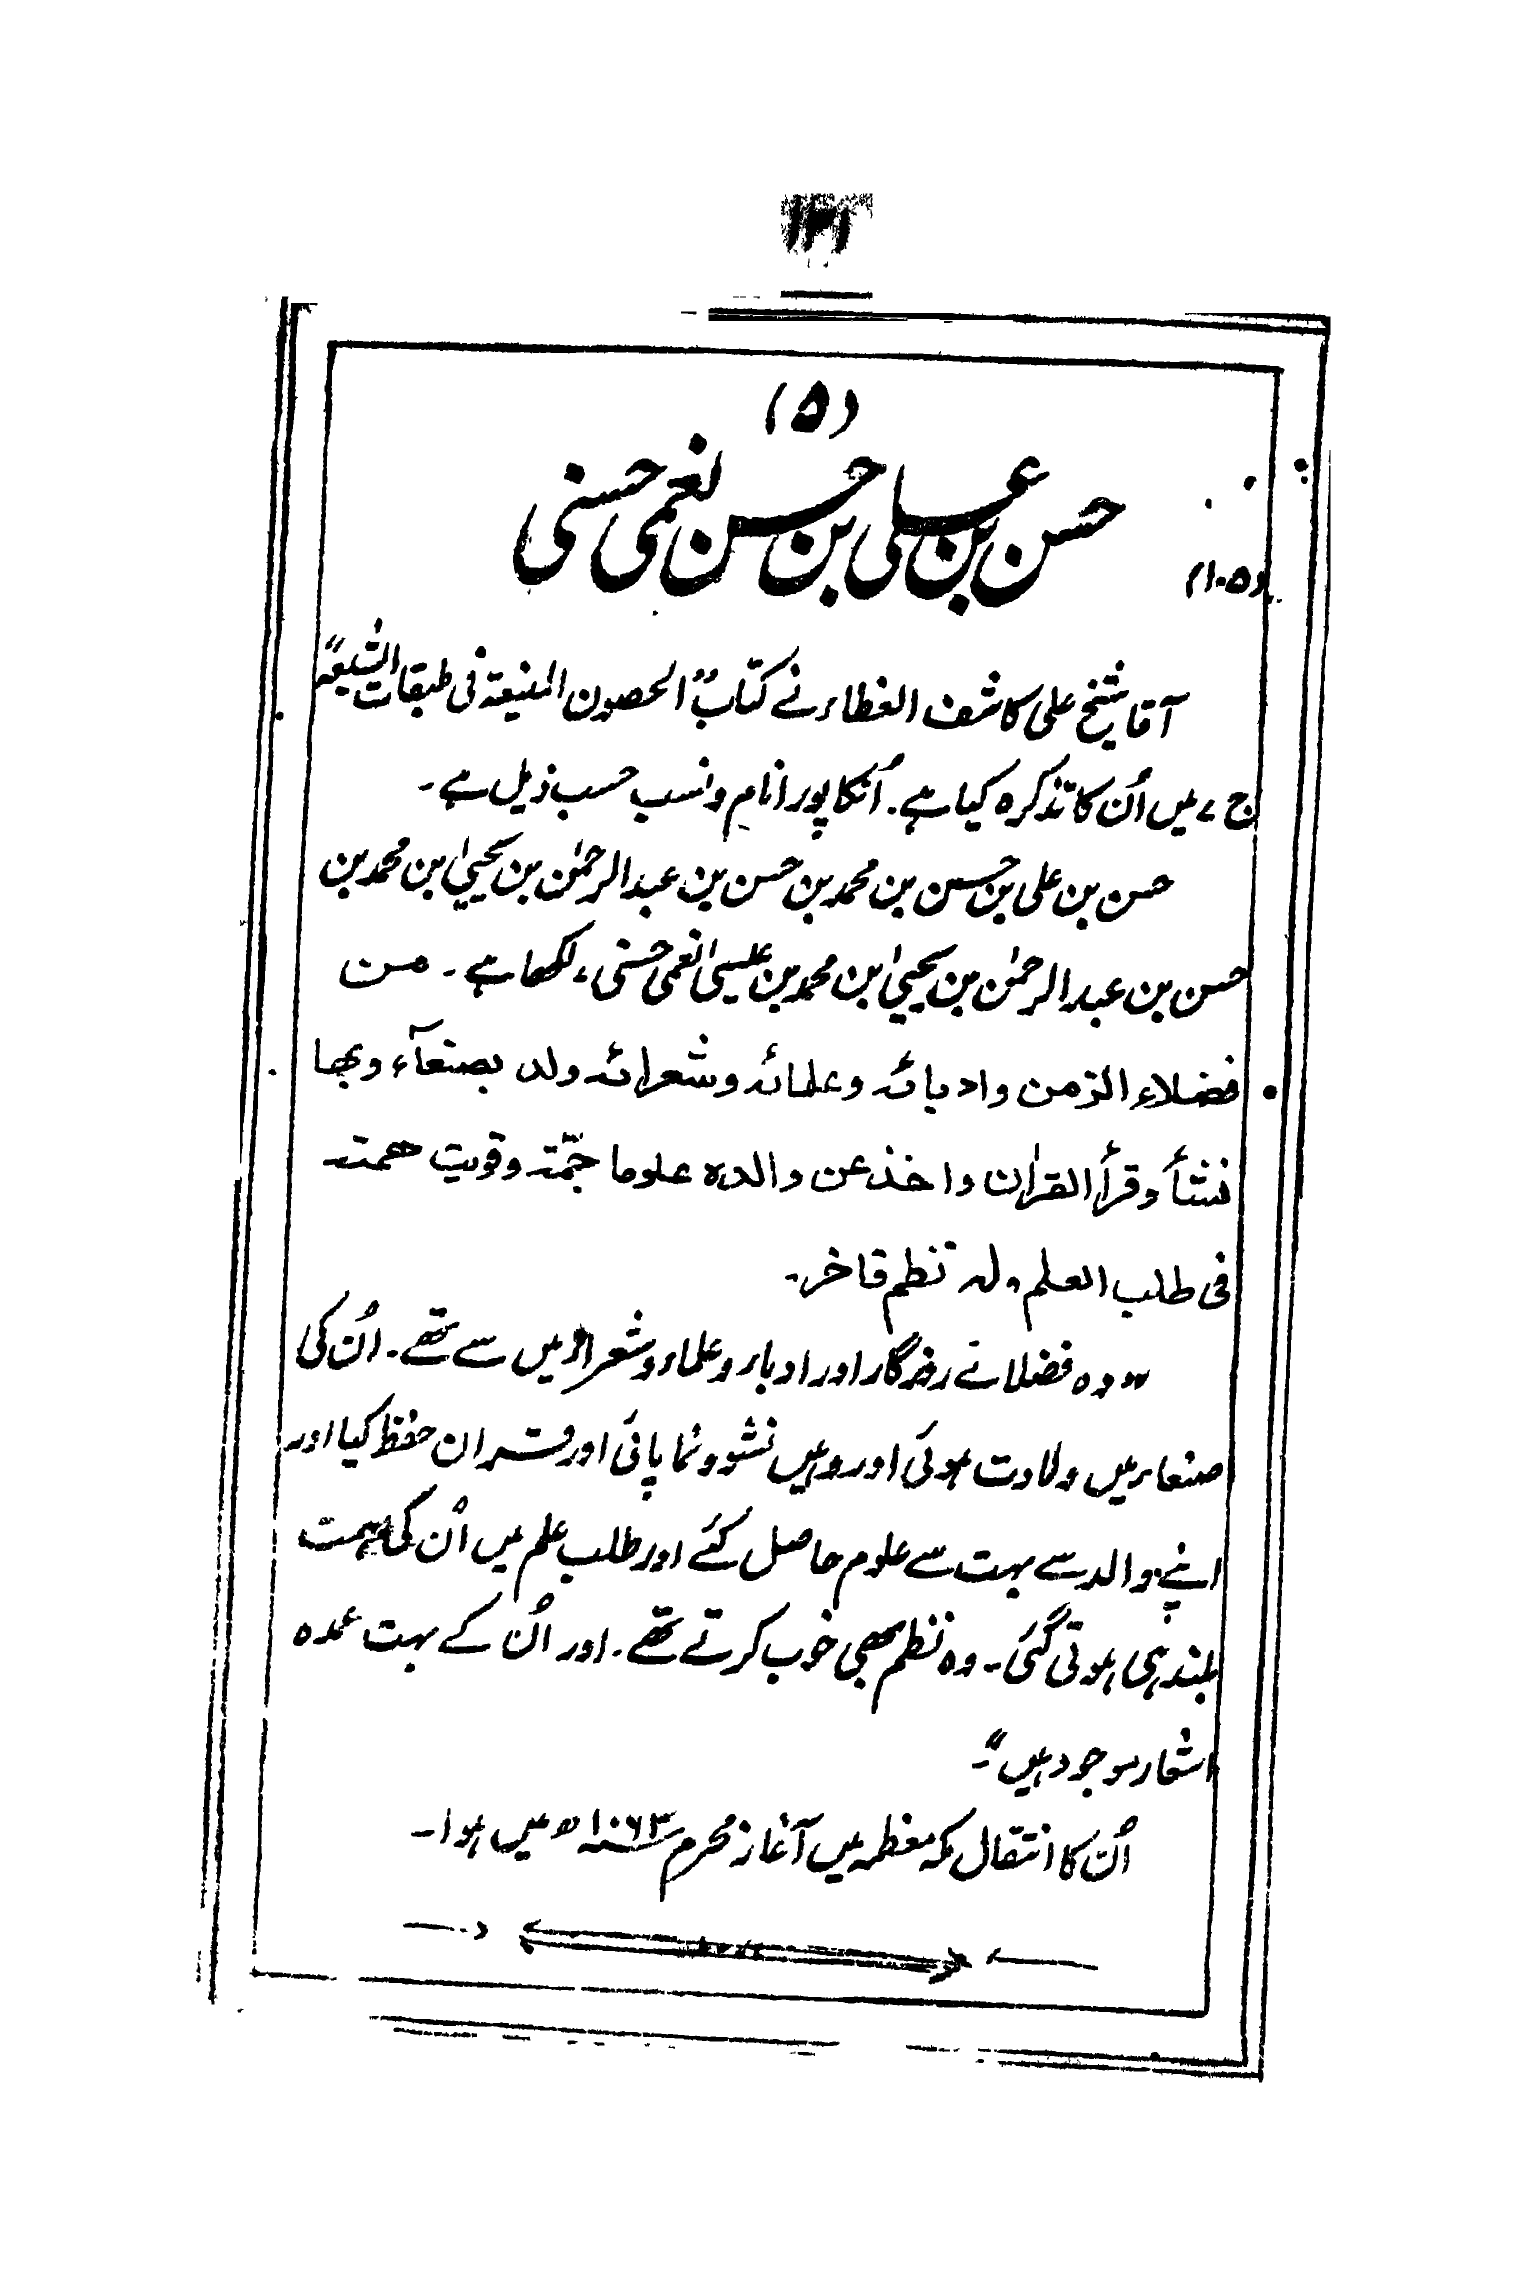 (۵)
حسن بن علی بن حسن نعمی حسنی
(۱۰۵)
آقا شیخ علی کاشف الغطاء نے کتاب "الحصون المنیعۃ فی طبقات الشیعۃ"
ج ۷ میں اُن کا تذکرہ کیا ہے۔ اُنکا پورا نام ونسب حسب ذیل ہے۔
حسن بن علی بن حسن بن محمد بن حسن بن عبدالرحمٰن بن یحییٰ بن محمد بن
حسن بن عبدالرحمٰن بن یحییٰ ابن محمد بن عیسیٰ نعمی حسنی، لکھا ہے۔ من
فضلاء الزمن وادبائہ وعلمائہ وشعرائہ ولد بصنعآء وبھا
نشأ وقرأ القراٰن واخذ عن والدہ علوما جمّتہ وقویت ھمتہ
فی طلب العلم ولہ نظم فاخر۔
"وہ فضلائے روزگار اور ادباء وعلماء وشعراء میں سے تھے۔ اُن کی
صنعاء میں ولادت ہوئی اور وہیں نشوونما پائی اور قران حفظ کیا اور
اپنے والد سے بہت سے علوم حاصل کئے اور طلب علم میں اُن کی ہمت
بلند ہی ہوتی گئی۔ وہ نظم بھی خوب کرتے تھے۔ اور اُن کے بہت عمدہ
اشعار موجود ہیں"۔
اُن کا انتقال مکہ معظمہ میں آغاز محرم ۱۰۶۳ھ میں ہوا۔